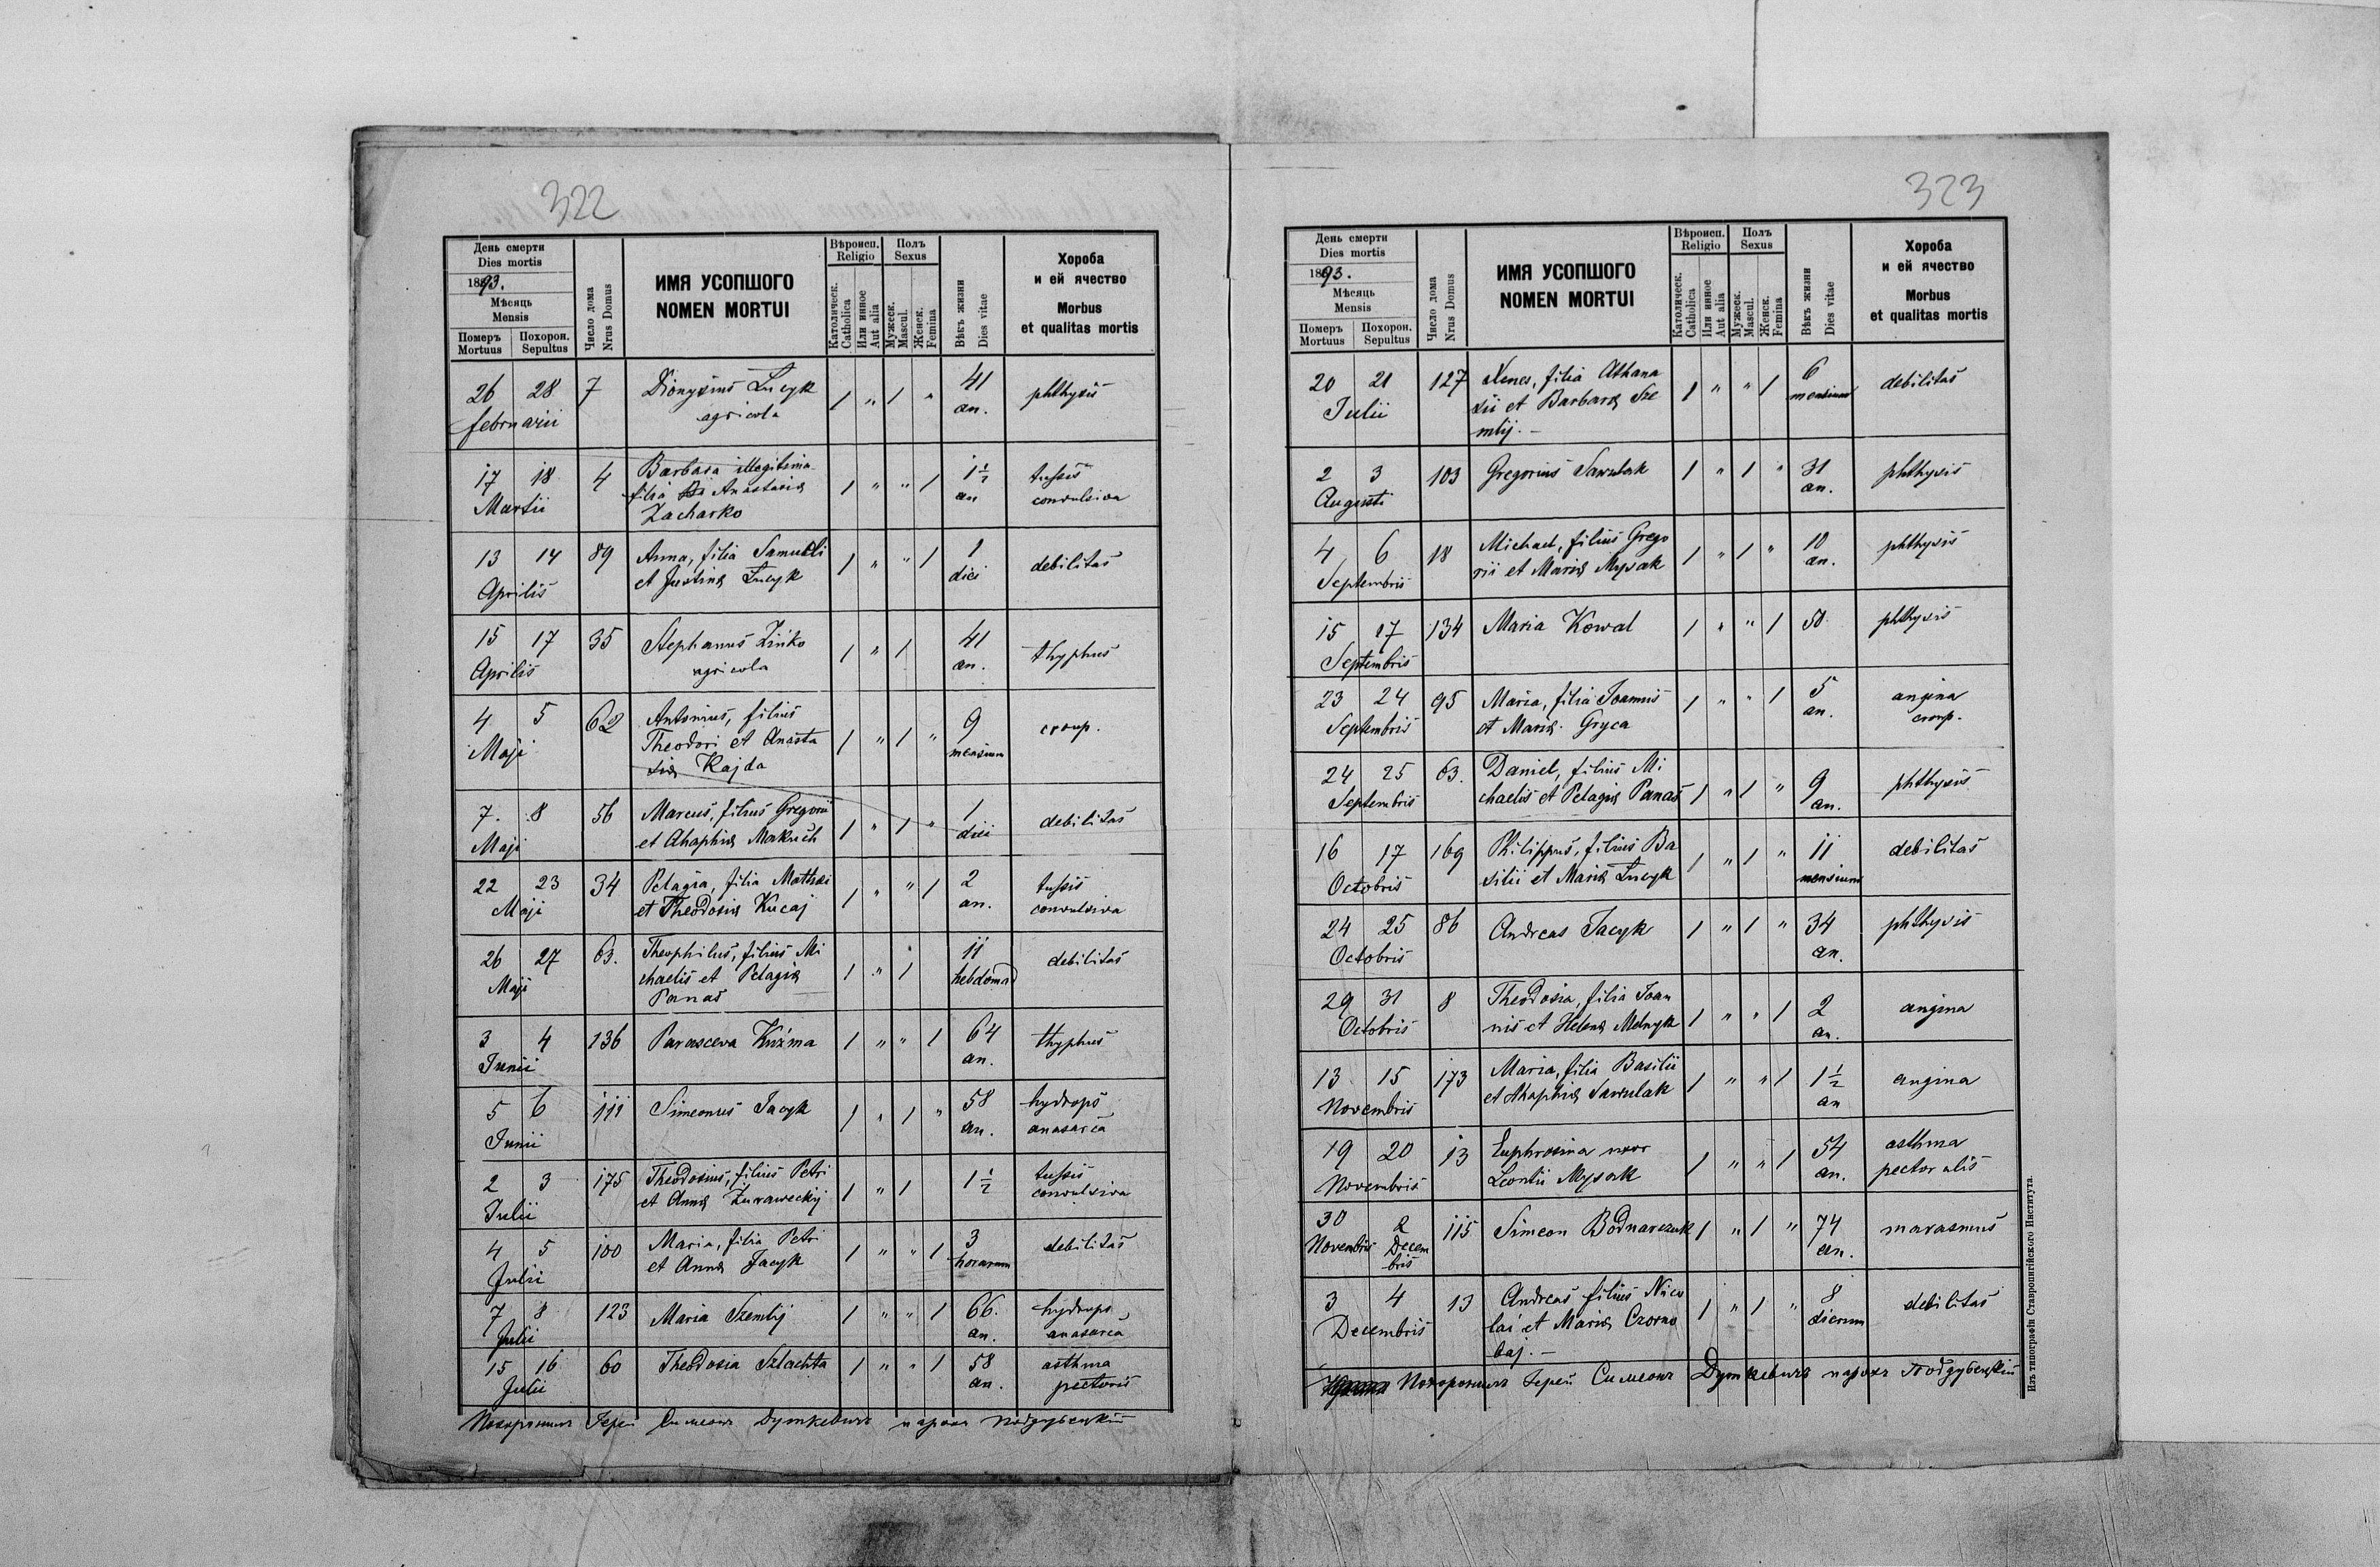 322
День смерти
Dies mortis
1893.
Мѣсяць
Mensis
Померъ
Mortuus
Похорон.
Sepultus
Число дома
Nrus Domus
ИМЯ УСОПШОГО
NOMEN MORTUI
Вѣроисп.
Religio
Католическ.
Catholica
Или инное
Aut alia
Полъ
Sexus
Мужеск.
Mascul.
Женск.
Femina
Вѣкъ жизни
Dies vitae
Хороба
и ей ячество
Morbus
et qualitas mortis
26 28 7 Dionysius Lucyk 1 " 1 " 41 phthysis
februarii agricola an.
17 18 4 Barbara illegitima 1 " " 1 1 1/2 tussis
Martii filia Anastasiæ an convulsiva
Zacharko
13 14 89 Anna, filia Samueli 1 " " 1 1 debilitas
Aprilis et Justinæ Lucyk diei
15 17 35 Stephanus Zinko 1 " 1 41 thyphus
Aprilis agricola an.
4 5 62 Antonius, filius 1 " 1 " 9 croup.
Maji Theodori et Anasta mensium
siæ Kajda
7. 8 56 Marcus, filius Gregorii 1 " 1 " 1 debilitas
Maji et Ahaphiæ Makuch diei
22 23 34 Pelagia, filia Mathæi 1 " " 1 2 tussis
Maji et Theodosiæ Kucaj an. convulsiva
26 27 63. Theophilus, filius Mi 1 " 1 " 11 debilitas
Maji chaelis et Pelagiæ hebdomad
Panas
3 4 136 Parasceva Kuźma 1 " " 1 64 thyphus
Junii an.
5 6 111 Simeonus Jacyk 1 " 1 " 58 hydrops
Junii an. anasarca
2 3 175 Theodosius, filius Petri 1 " 1 1 1/2 tussis
Julii et Annæ Żuraweckij convulsiva
4 5 100 Maria, filia Petri 1 " " 1 3 debilitas
Julii et Annæ Jacyk horarum
7 8 123 Maria Szemlij 1 " " 1 66. hydrops
Julii an. anasarca
15 16 60 Theodosia Szlachta 1 " " 1 58 asthma
Julii an. pectoris
Похоронилъ Іерей Симеонъ Дуткевичъ парохъ Поддубецкій
323
День смерти
Dies mortis
1893.
Мѣсяць
Mensis
Померъ
Mortuus
Похорон.
Sepultus
Число дома
Nrus Domus
ИМЯ УСОПШОГО
NOMEN MORTUI
Вѣроисп.
Religio
Католическ.
Catholica
Или инное
Aut alia
Полъ
Sexus
Мужеск.
Mascul.
Женск.
Femina
Вѣкъ жизни
Dies vitae
Хороба
и ей ячество
Morbus
et qualitas mortis
20 21 127 filia Athana 1 " " 1 6 debilitas
Julii sii et Barbaræ Sze mensium
mlij. –
2 3 103 Gregorius Sawulak 1 " 1 " 31 phthysis
Augusti an.
4 6 18 Michael, filius Grego 1 " 1 " 10 phthysis
Septembris rii et Mariæ Mysak an.
15 17 134 Maria Kowal 1 " " 1 50. phthysis
Septembris
23 24 95 Maria, filia Joannis 1 " " 1 5 angina
Septembris et Mariæ Gryca an. croup.
24 25 63. Daniel, filius Mi 1 " 1 " 9 phthysis
Septembris chaelis et Pelagiæ Panas an.
16 17 169 Philippus, filius Ba 1 " 1 " 11 debilitas
Octobris silii et Mariæ Lucyk mensium
24 25 86 Andreas Jacyk 1 " 1 " 34 phthysis
Octobris an.
29 31 8 Theodosia, filia Joan 1 " " 1 2 angina
Octobris nis et Helenæ Melnyk an.
13 15 173 Maria, filia Basilii 1 " " 1 1 1/2 angina
Novembris et Ahaphiæ Sawulak an
19 20 13 Euphrosina uxor 1 " " 1 54 asthma
Novembris Leontii Mysak an. pectoralis
30 2 115 Simeon Bodnarczuk 1 " 1 " 74 marasmus
Novembris Decem an.
bris
3 4 13 Andreas filius Nico 1 " 1 " 8 debilitas
Decembris lai et Mariæ Czorno dierum
baj. –
Похоронилъ Іерей Симеонъ Дуткевичъ парохъ Поддубецкій
Изъ типографіи Ставропигійского Института.